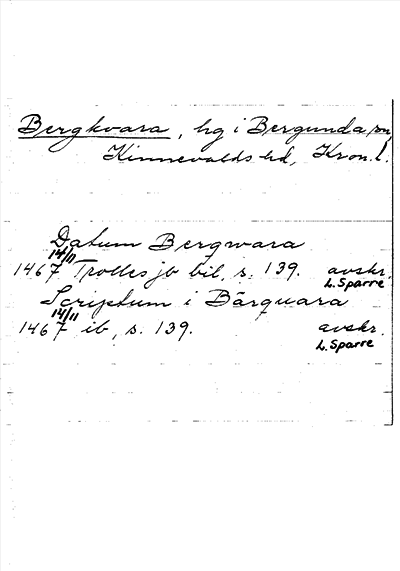 Bergkvara, hg i Bergunda sn,
Kinnevalds hd, Kron. l.
Datum Bergwara
14/11
1467 Trolles jb bil, s. 139. avskr.
L. Sparre
Scriptum i Bärquara
14/11
1467 ib, s. 139. avskr.
L. Sparre